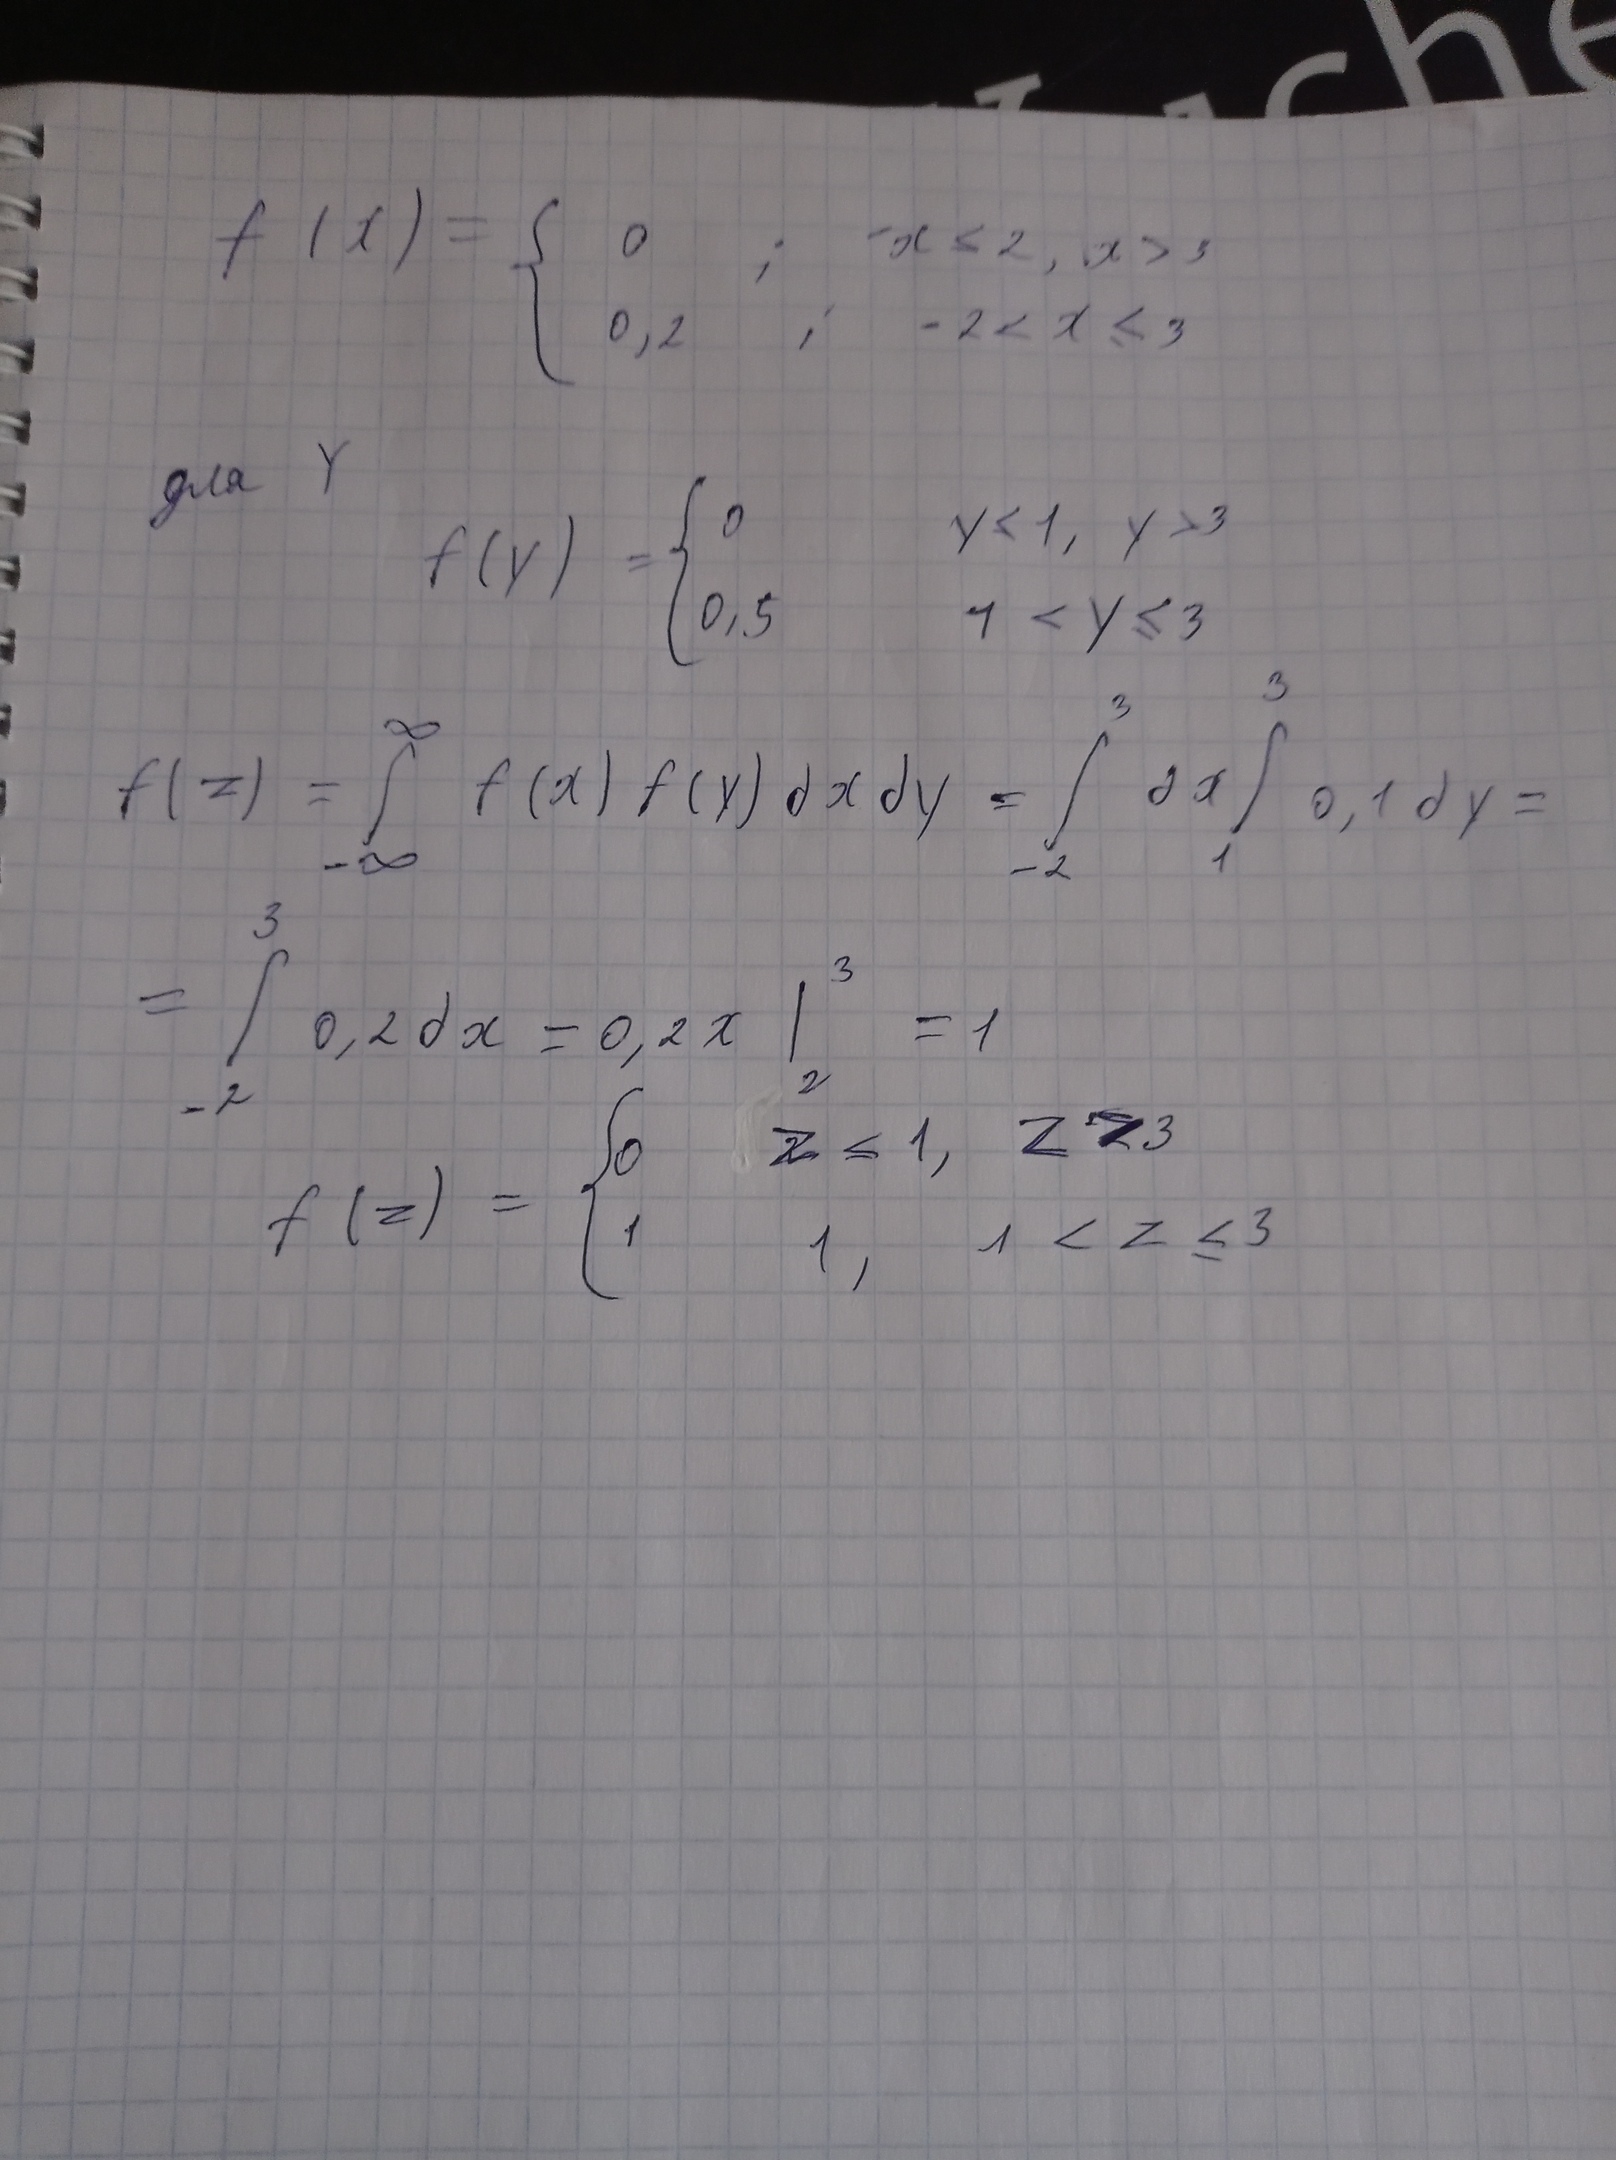 f(x) = { 0 ; -x ≤ 2, x > 3
0,2 ; -2 < x ≤ 3
для Y
f(y) = { 0 y ≤ 1, y > 3
0,5 1 < y ≤ 3
f(z) = ∫_{-∞}^{∞} f(x) f(y) dx dy = ∫_{-2}^{3} dx ∫_{1}^{3} 0,1 dy =
= ∫_{-2}^{3} 0,2 dx = 0,2x |_{2}^{3} = 1
f(z) = { 0 z ≤ 1, z > 3
1 1, 1 < z ≤ 3